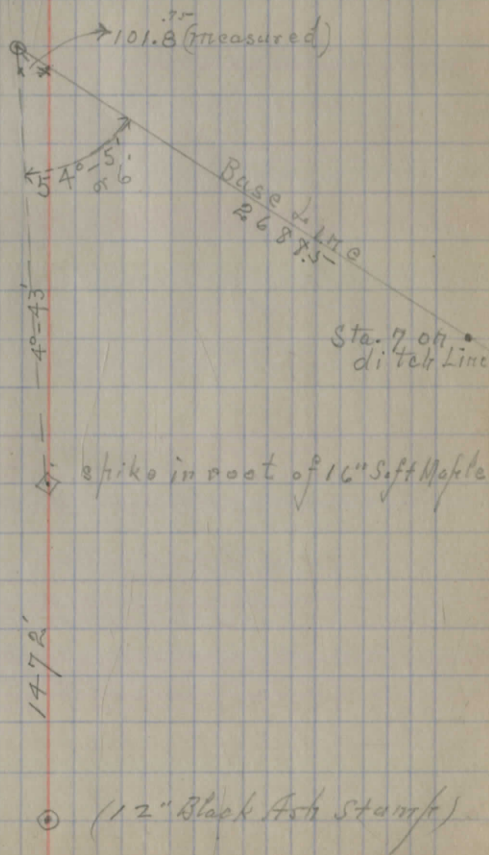 .75
101.8 (measured)
54°-5'
or 6'
Base Line
2687.5
4°-43'
Sta. 7 on
ditch Line
spike in root of 16" Soft Maple
1472'
(12" Black Ash Stump)